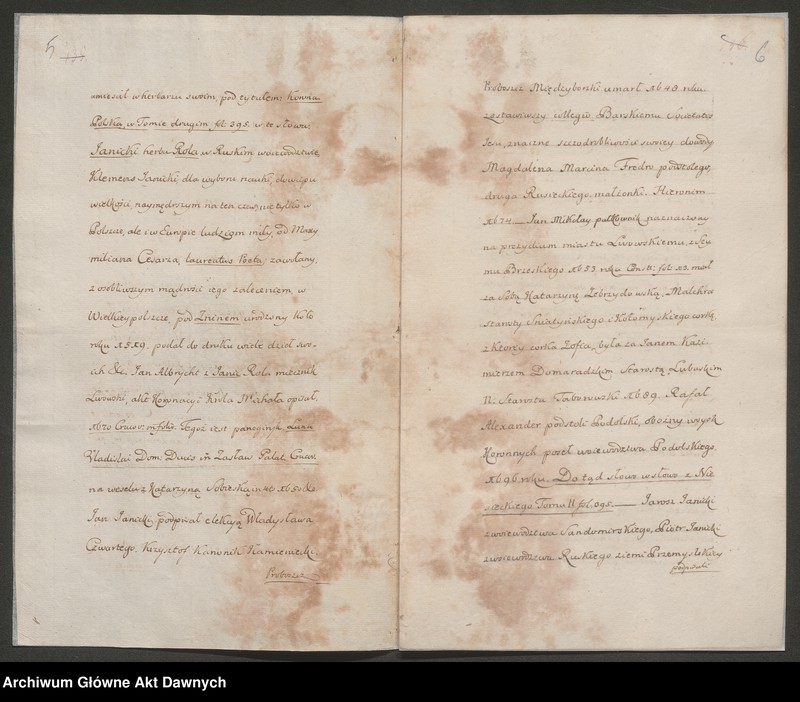 5
umieścił w herbarzu swoim, pod tytułem: Korona
Polska, w Tomie drugim fol: 395. w te słowa:
Janicki herbu Rola w Ruskim woiewodztwie,
Klemens Janicki, dla wyboru nauki, dowcipu
wielkości naymędrszym na ten czas, nie tylko w
Polszcze, ale i w Europie ludziom miły, od Maxy
miliana Cesarza, laureatus Poeta, zawołany,
z osobliwszym mądrości iego zaleceniem, w
Wielkieypolszcze, pod Zninem urodzony koło
roku 1519, podał do druku wiele dzieł swo-
ich &c. Jan Albrycht z Janic Rola miecznik
Lwowski, akt Koronacyi Króla Michała opisał.
1670 Cracov: in folio. Tegoż iest panegiryk
Vladislai Dom: Ducis in Zasław Palat. Cracov:
na weselu z Katarzyną Sobieską in 4to 1650
Jan Janicki, podpisał elekcyą Władysława
Czwartego, Krzysztof Kanonik Kamieniecki,
Proboszcz
6
Proboszcz Międzyborski umarł 1643. roku.
zostawiwszy collegio Barskiemu Societatis
Jesu, znaczne szczodrobliwości swoiey dowody
Magdalena Marcina Fredro podstolego,
druga Rusieckiego małżonki. Hieronim
1674 Jan Mikołay pułkownik naznaczony
na prezydium miasta Lwowskiemu, z Sey
mu Brzeskiego 1653 roku Const: fol: 12. miał
za Sobą Katarzynę Zebrzydowską, Malchra
starosty Sniatyńskiego i Kołomyskiego corkę,
z ktorey corka Zofia, była za Janem Kazi-
mierzem Domaradzkim Starostą Lubaskim
N: Starosta Taborowski 1689. Rafał
Alexander podstoli Podolski, obozny woysk
Koronnych poseł woiewodztwa Podolskiego,
1696 roku. Dotąd słowo w słowo z Nie
sieckiego Tomu II fol: 395. Jarosz Janicki
z woiewodztwa Sandomirskiego, Piotr Janicki
z woiewodztwa Ruskiego ziemi Przemyslskiey
podpisali
Archiwum Główne Akt Dawnych